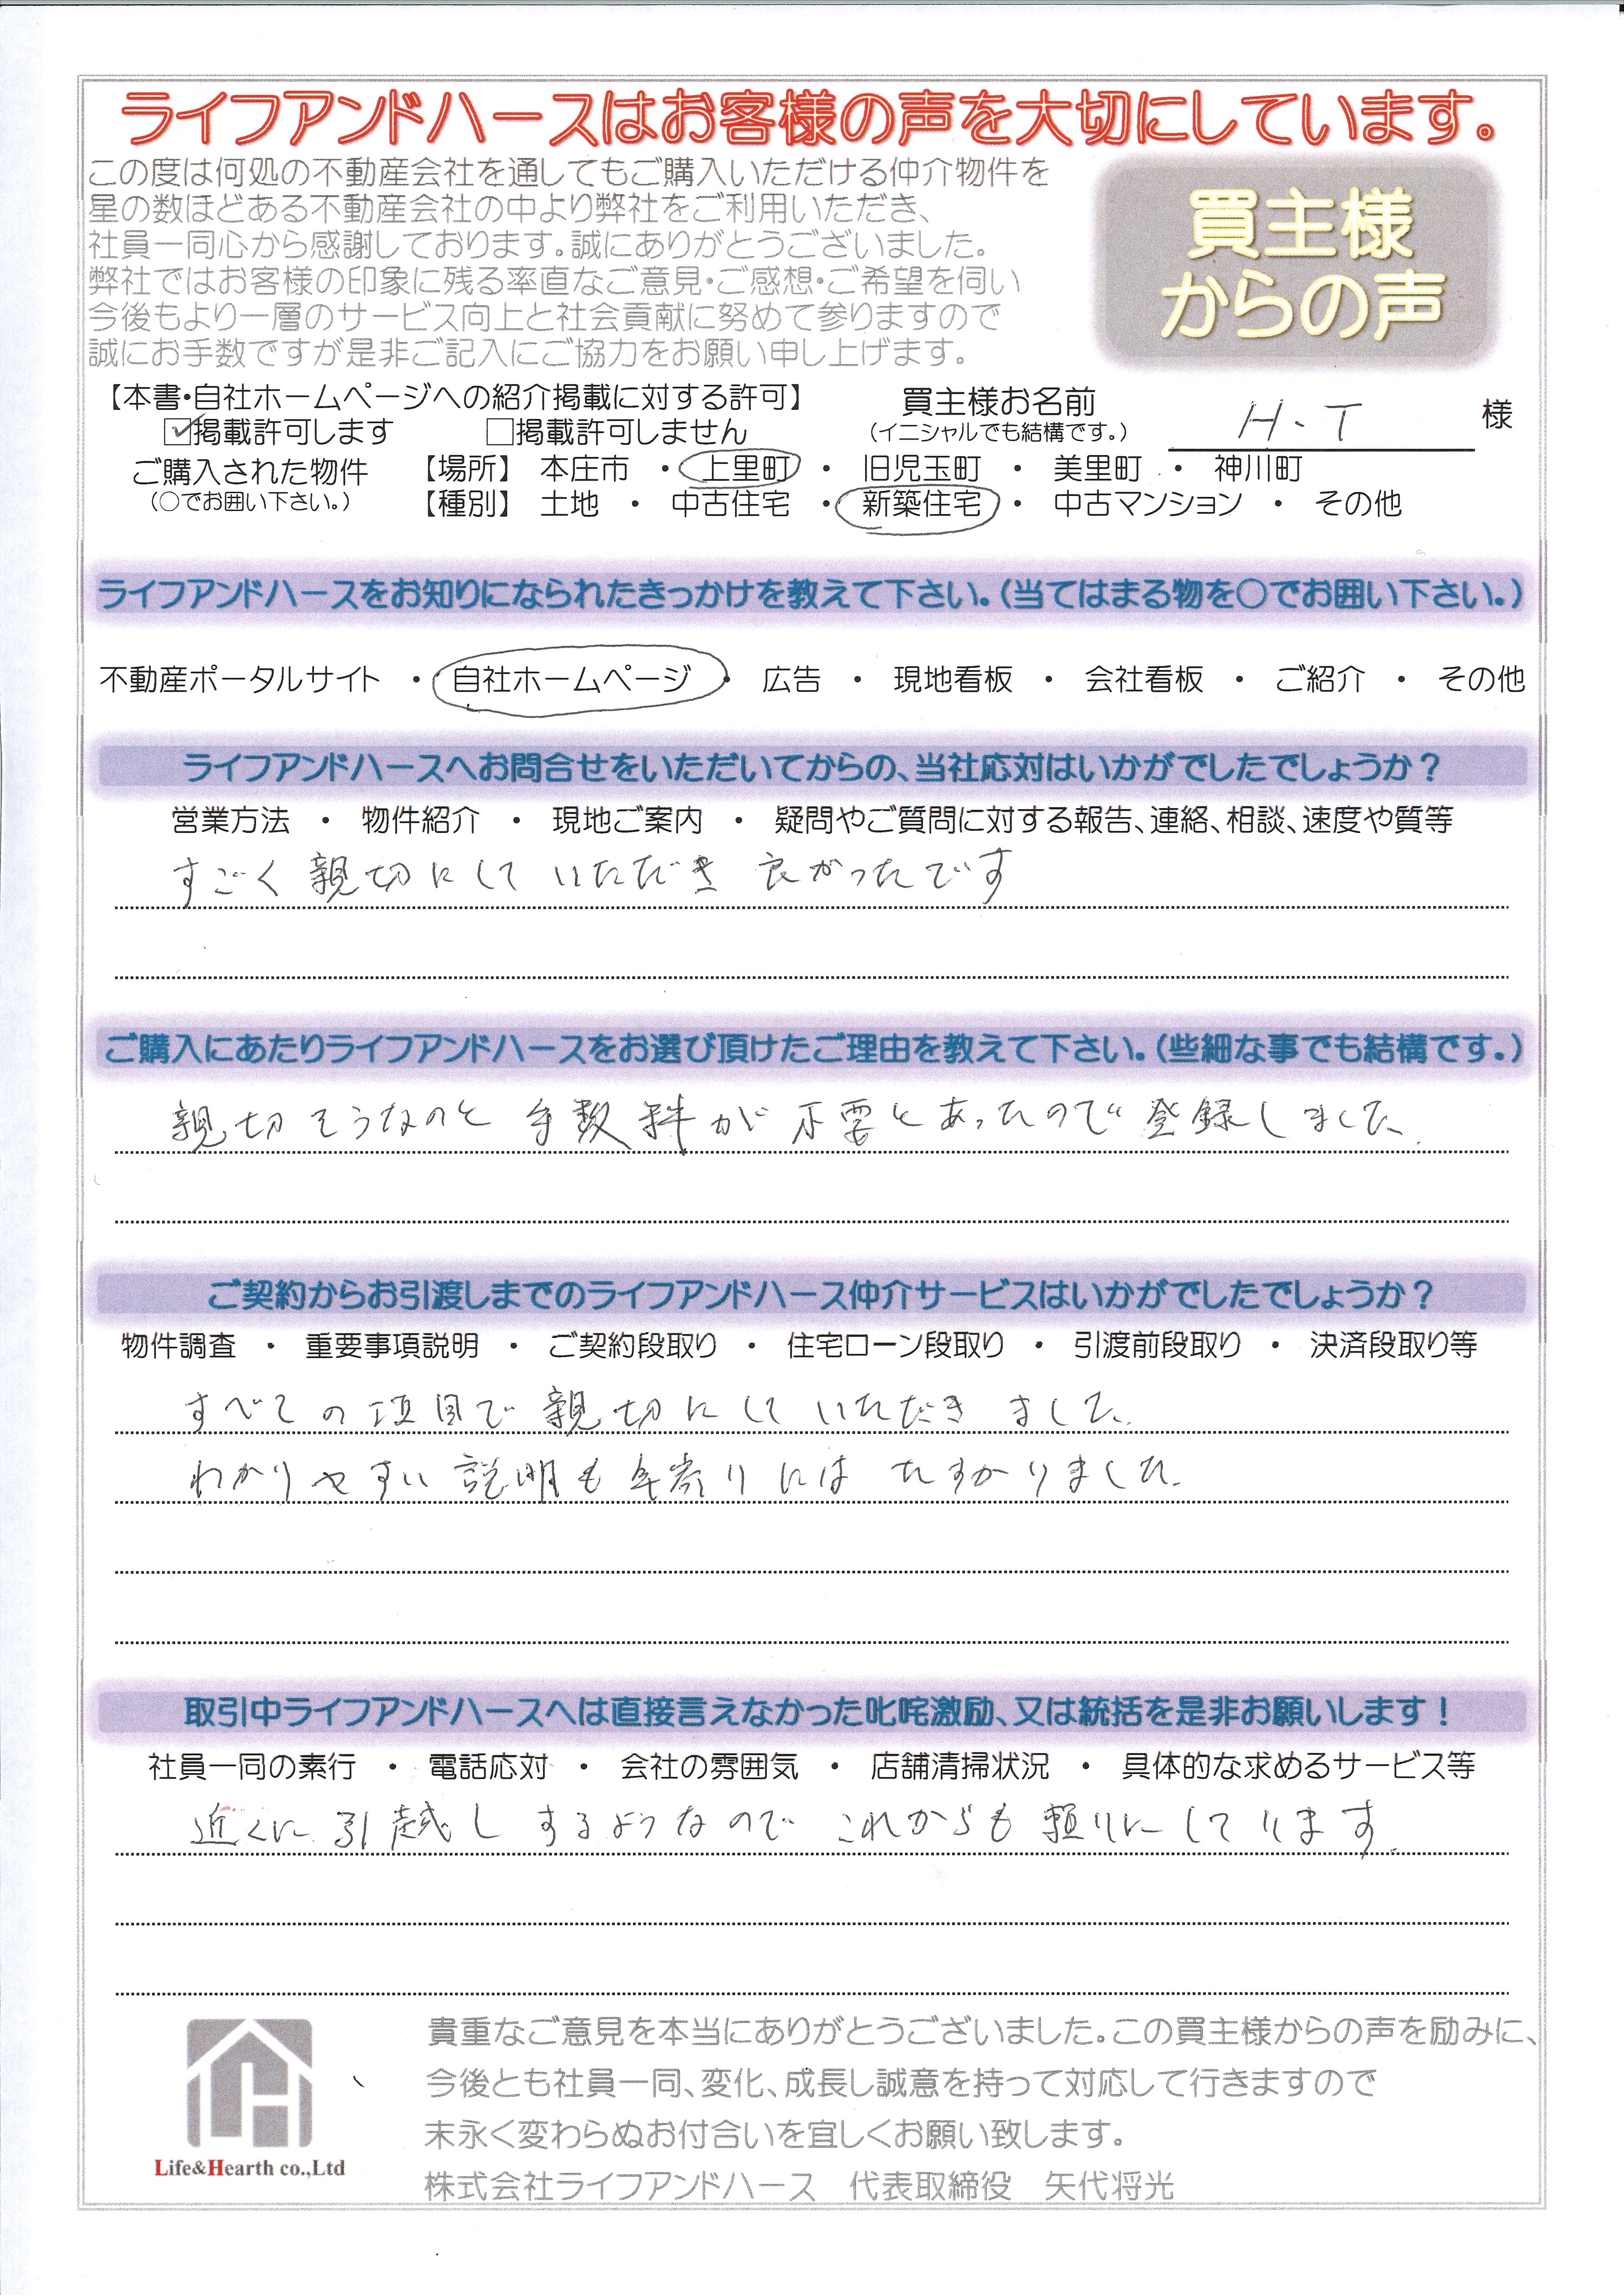 ライフアンドハースはお客様の声を大切にしています。
この度は何処の不動産会社を通してもご購入いただける仲介物件を
星の数ほどある不動産会社の中より弊社をご利用いただき、
社員一同心から感謝しております。誠にありがとうございました。
弊社ではお客様の印象に残る率直なご意見・ご感想・ご希望を伺い
今後もより一層のサービス向上と社会貢献に努めて参りますので
誠にお手数ですが是非ご記入にご協力をお願い申し上げます。
買主様
からの声
【本書・自社ホームページへの紹介掲載に対する許可】
☑掲載許可します □掲載許可しません
買主様お名前
(イニシャルでも結構です。)
H・T 様
ご購入された物件 【場所】 本庄市 ・ 上里町 ・ 旧児玉町 ・ 美里町 ・ 神川町
(○でお囲い下さい。) 【種別】 土地 ・ 中古住宅 ・ 新築住宅 ・ 中古マンション ・ その他
ライフアンドハースをお知りになられたきっかけを教えて下さい。(当てはまる物を○でお囲い下さい。)
不動産ポータルサイト ・ 自社ホームページ ・ 広告 ・ 現地看板 ・ 会社看板 ・ ご紹介 ・ その他
ライフアンドハースへお問合せをいただいてからの、当社応対はいかがでしたでしょうか？
営業方法 ・ 物件紹介 ・ 現地ご案内 ・ 疑問やご質問に対する報告、連絡、相談、速度や質等
すごく親切にしていただき良かったです
ご購入にあたりライフアンドハースをお選び頂けたご理由を教えて下さい。(些細な事でも結構です。)
親切そうなのと手数料が不要とあったので登録しました。
ご契約からお引渡しまでのライフアンドハース仲介サービスはいかがでしたでしょうか？
物件調査 ・ 重要事項説明 ・ ご契約段取り ・ 住宅ローン段取り ・ 引渡前段取り ・ 決済段取り等
すべての項目で親切にしていただきました。
わかりやすい説明も年寄りにはたすかりました。
取引中ライフアンドハースへは直接言えなかった叱咤激励、又は統括を是非お願いします！
社員一同の素行 ・ 電話応対 ・ 会社の雰囲気 ・ 店舗清掃状況 ・ 具体的な求めるサービス等
近くに引越しするようなのでこれからも頼りにしています。
貴重なご意見を本当にありがとうございました。この買主様からの声を励みに、
今後とも社員一同、変化、成長し誠意を持って対応して行きますので
末永く変わらぬお付合いを宜しくお願い致します。
Life&Hearth co.,Ltd
株式会社ライフアンドハース 代表取締役 矢代将光